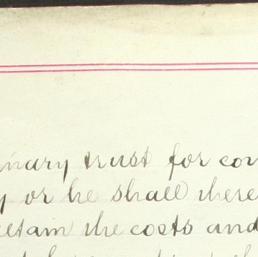 inary trust for con
y or he shall there
retain the costs and